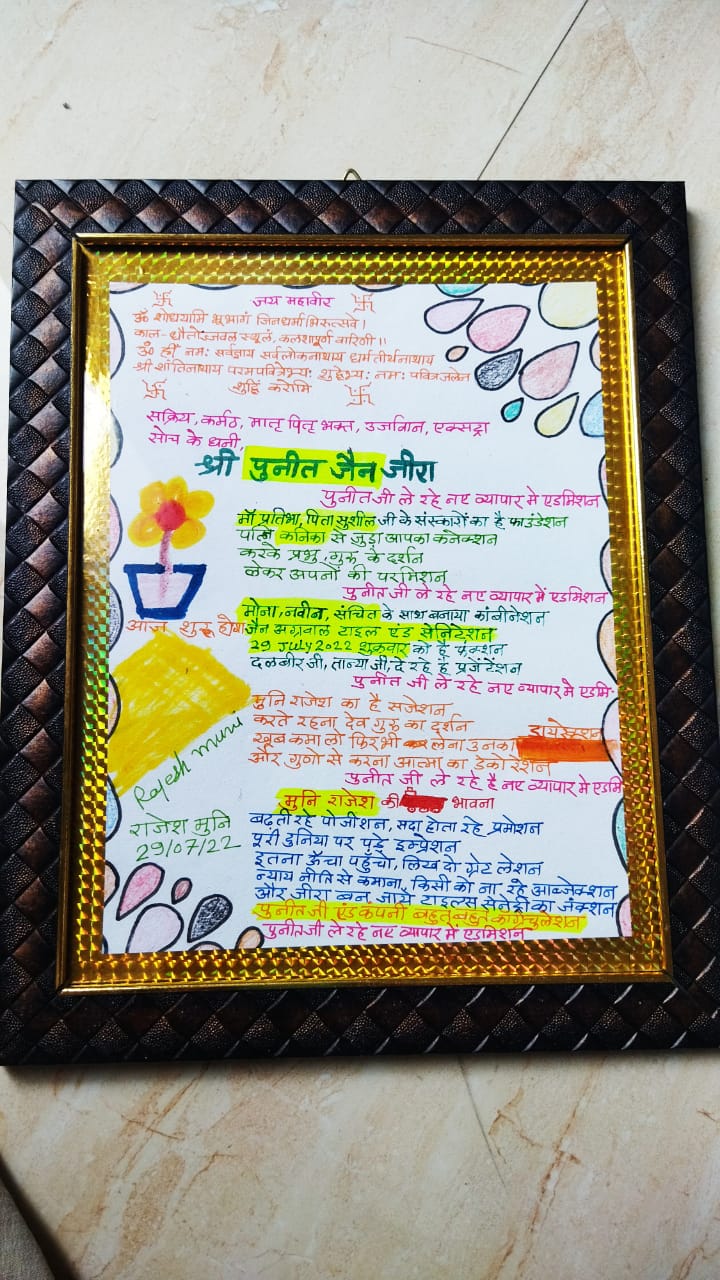 卐 जय महावीर 卐
ॐ शोधयामि भूभागं जिनधर्माभिरुत्सवे।
काल-धौतोज्जवल स्थूलं, कलशापूर्ण वारिणी।।
ॐ ह्रीं नमः सर्वज्ञाय सर्वलोकनाथाय धर्मतीर्थनाथाय
श्री शांतिनाथाय परमपवित्रेभ्यः शुद्धेभ्यः नमः पवित्रजलेन
卐 शुद्धिं करोमि 卐
सक्रिय, कर्मठ, मातृ पितृ भक्त, उर्जावान, एक्सट्रा
सोच के धनी,
श्री पुनीत जैन जीरा
पुनीतजी ले रहे नए व्यापार मे एडमिशन
माँ प्रतिभा, पिता सुशील जी के संस्कारों का है फाउंडेशन
पत्नि कनिका से जुड़ा आपका कनेक्शन
करके प्रभु, गुरु के दर्शन
लेकर अपनों की परमिशन
पुनीतजी ले रहे नए व्यापार में एडमिशन
मोना, नवीन, संचित के साथ बनाया कांबीनेशन
आज शुरू होगा जैन अग्रवाल टाइल एंड सेनिटेशन
29 July 2022 शुक्रवार को है फंक्शन
दलबीर जी, तान्या जी, दे रहे है प्रजेंटेशन
पुनीत जी ले रहे नए व्यापार मे एडमि
मुनि राजेश का है सजेशन
करते रहना देव गुरु का दर्शन
खूब कमा लो फिर भी लेना उनका डायरेक्शन
और गुणो से करना आत्मा का डेकोरेशन
पुनीत जी ले रहे है नए व्यापार मे एडमि
मुनि राजेश की भावना
बढ़ती रहे पोजीशन, सदा होता रहे प्रमोशन
पूरी दुनिया पर पड़े इम्प्रेशन
इतना ऊँचा पहुँचो, लिख दो ग्रेट लेशन
न्याय नीति से कमाना, किसी को ना रहे आब्जेक्शन
और जीरा बन जाये टाइल्स सेनेट्री का जंक्शन
पुनीतजी एंड कंपनी बहुत बहुत कांग्रचुलेशन
पुनीतजी ले रहे नए व्यापार में एडमिशन
Rajesh muni
राजेश मुनि
29/07/22